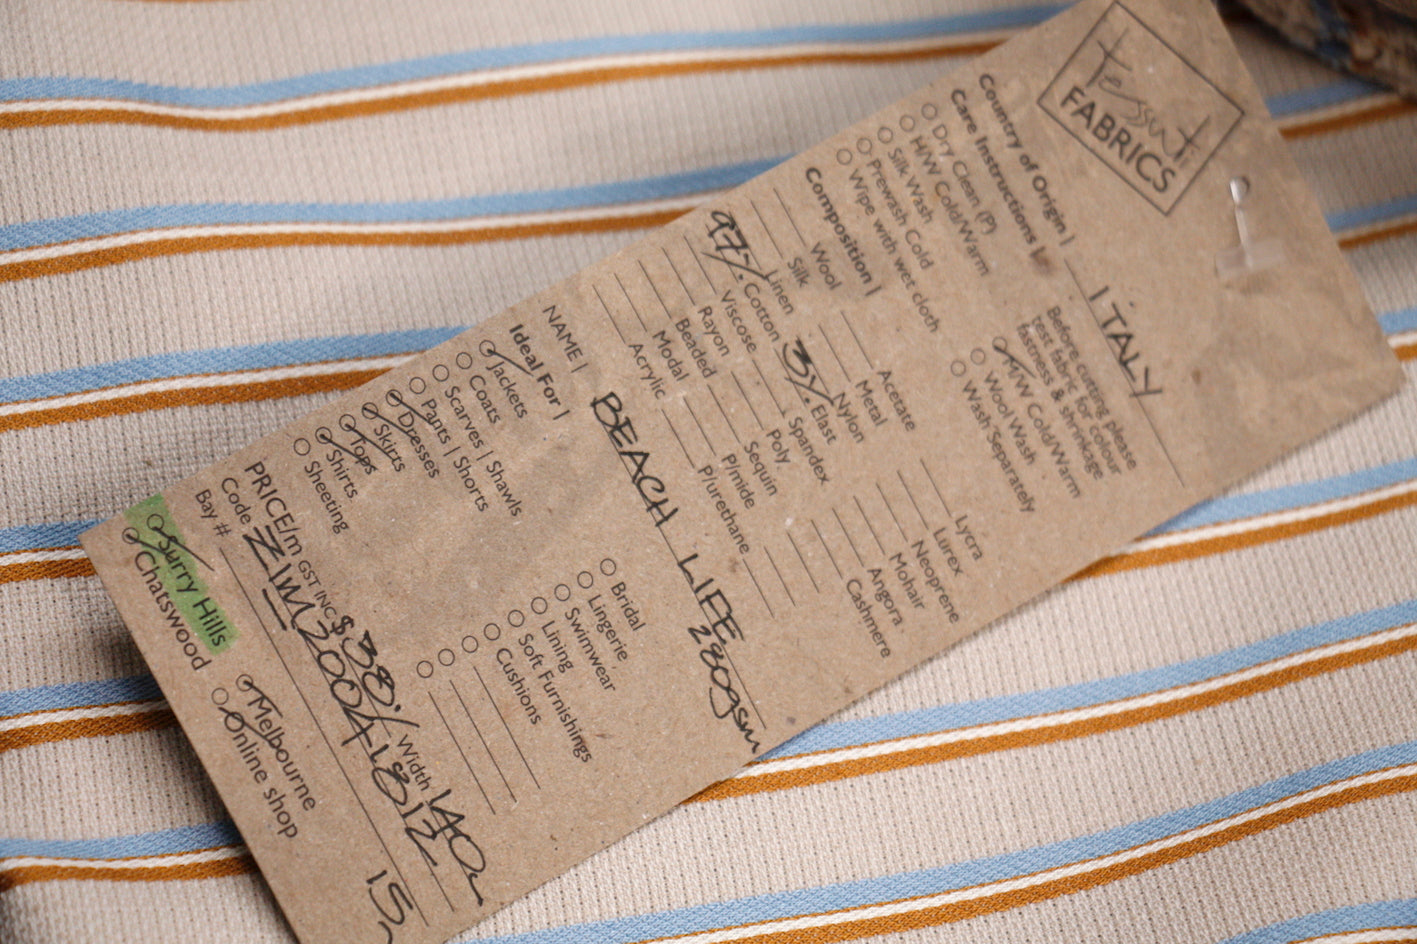 Tessuti
FABRICS
Country of Origin | ITALY
Care Instructions |
Dry Clean (P)
H/W Cold/Warm
Silk Wash
Prewash Cold
Wipe with wet cloth
Before cutting please
test fabric for colour
fastness & shrinkage
M/W Cold/Warm
Wool Wash
Wash Separately
Composition |
Wool
Silk
Linen
97% Cotton
Viscose
Rayon
Beaded
Modal
Acrylic
Acetate
Metal
Nylon
3% Elast
Spandex
Poly
Sequin
P/mide
P/urethane
Lycra
Lurex
Neoprene
Mohair
Angora
Cashmere
NAME | BEACH LIFE 280gsm
Ideal For |
Jackets
Coats
Scarves | Shawls
Pants | Shorts
Dresses
Skirts
Tops
Shirts
Sheeting
Bridal
Lingerie
Swimwear
Lining
Soft Furnishings
Cushions
PRICE/m GST INC $38./ Width 140
Code
Bay # 15
Surry Hills
Chatswood
Melbourne
Online shop